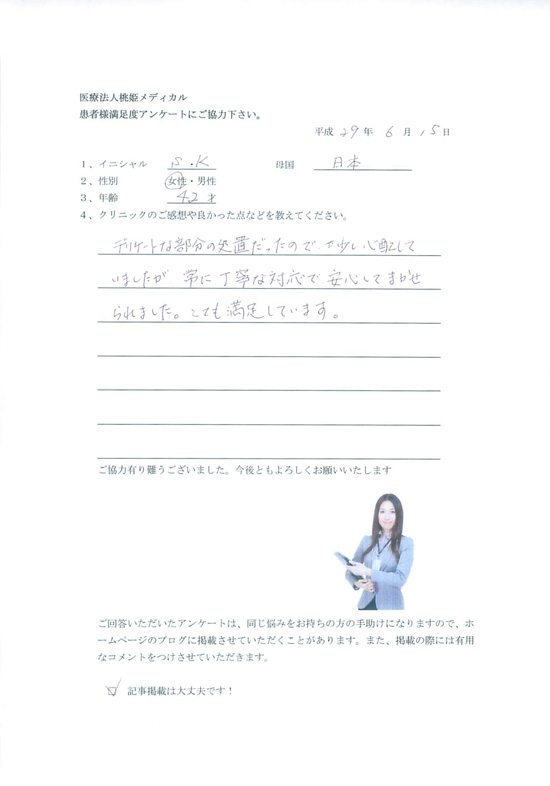 医療法人桃姫メディカル
患者様満足度アンケートにご協力下さい。
平成 29 年 6 月 15 日
1、イニシャル S.K 母国 日本
2、性別 女性・男性
3、年齢 42 才
4、クリニックのご感想や良かった点などを教えてください。
デリケートな部分の処置だったので、少し心配して
いましたが 常に丁寧な対応で安心してまかせ
られました。とても満足しています。
ご協力有り難うございました。今後ともよろしくお願いいたします
ご回答いただいたアンケートは、同じ悩みをお持ちの方の手助けになりますので、ホ
ームページのブログに掲載させていただくことがあります。また、掲載の際には有用
なコメントをつけさせていただきます。
記事掲載は大丈夫です！